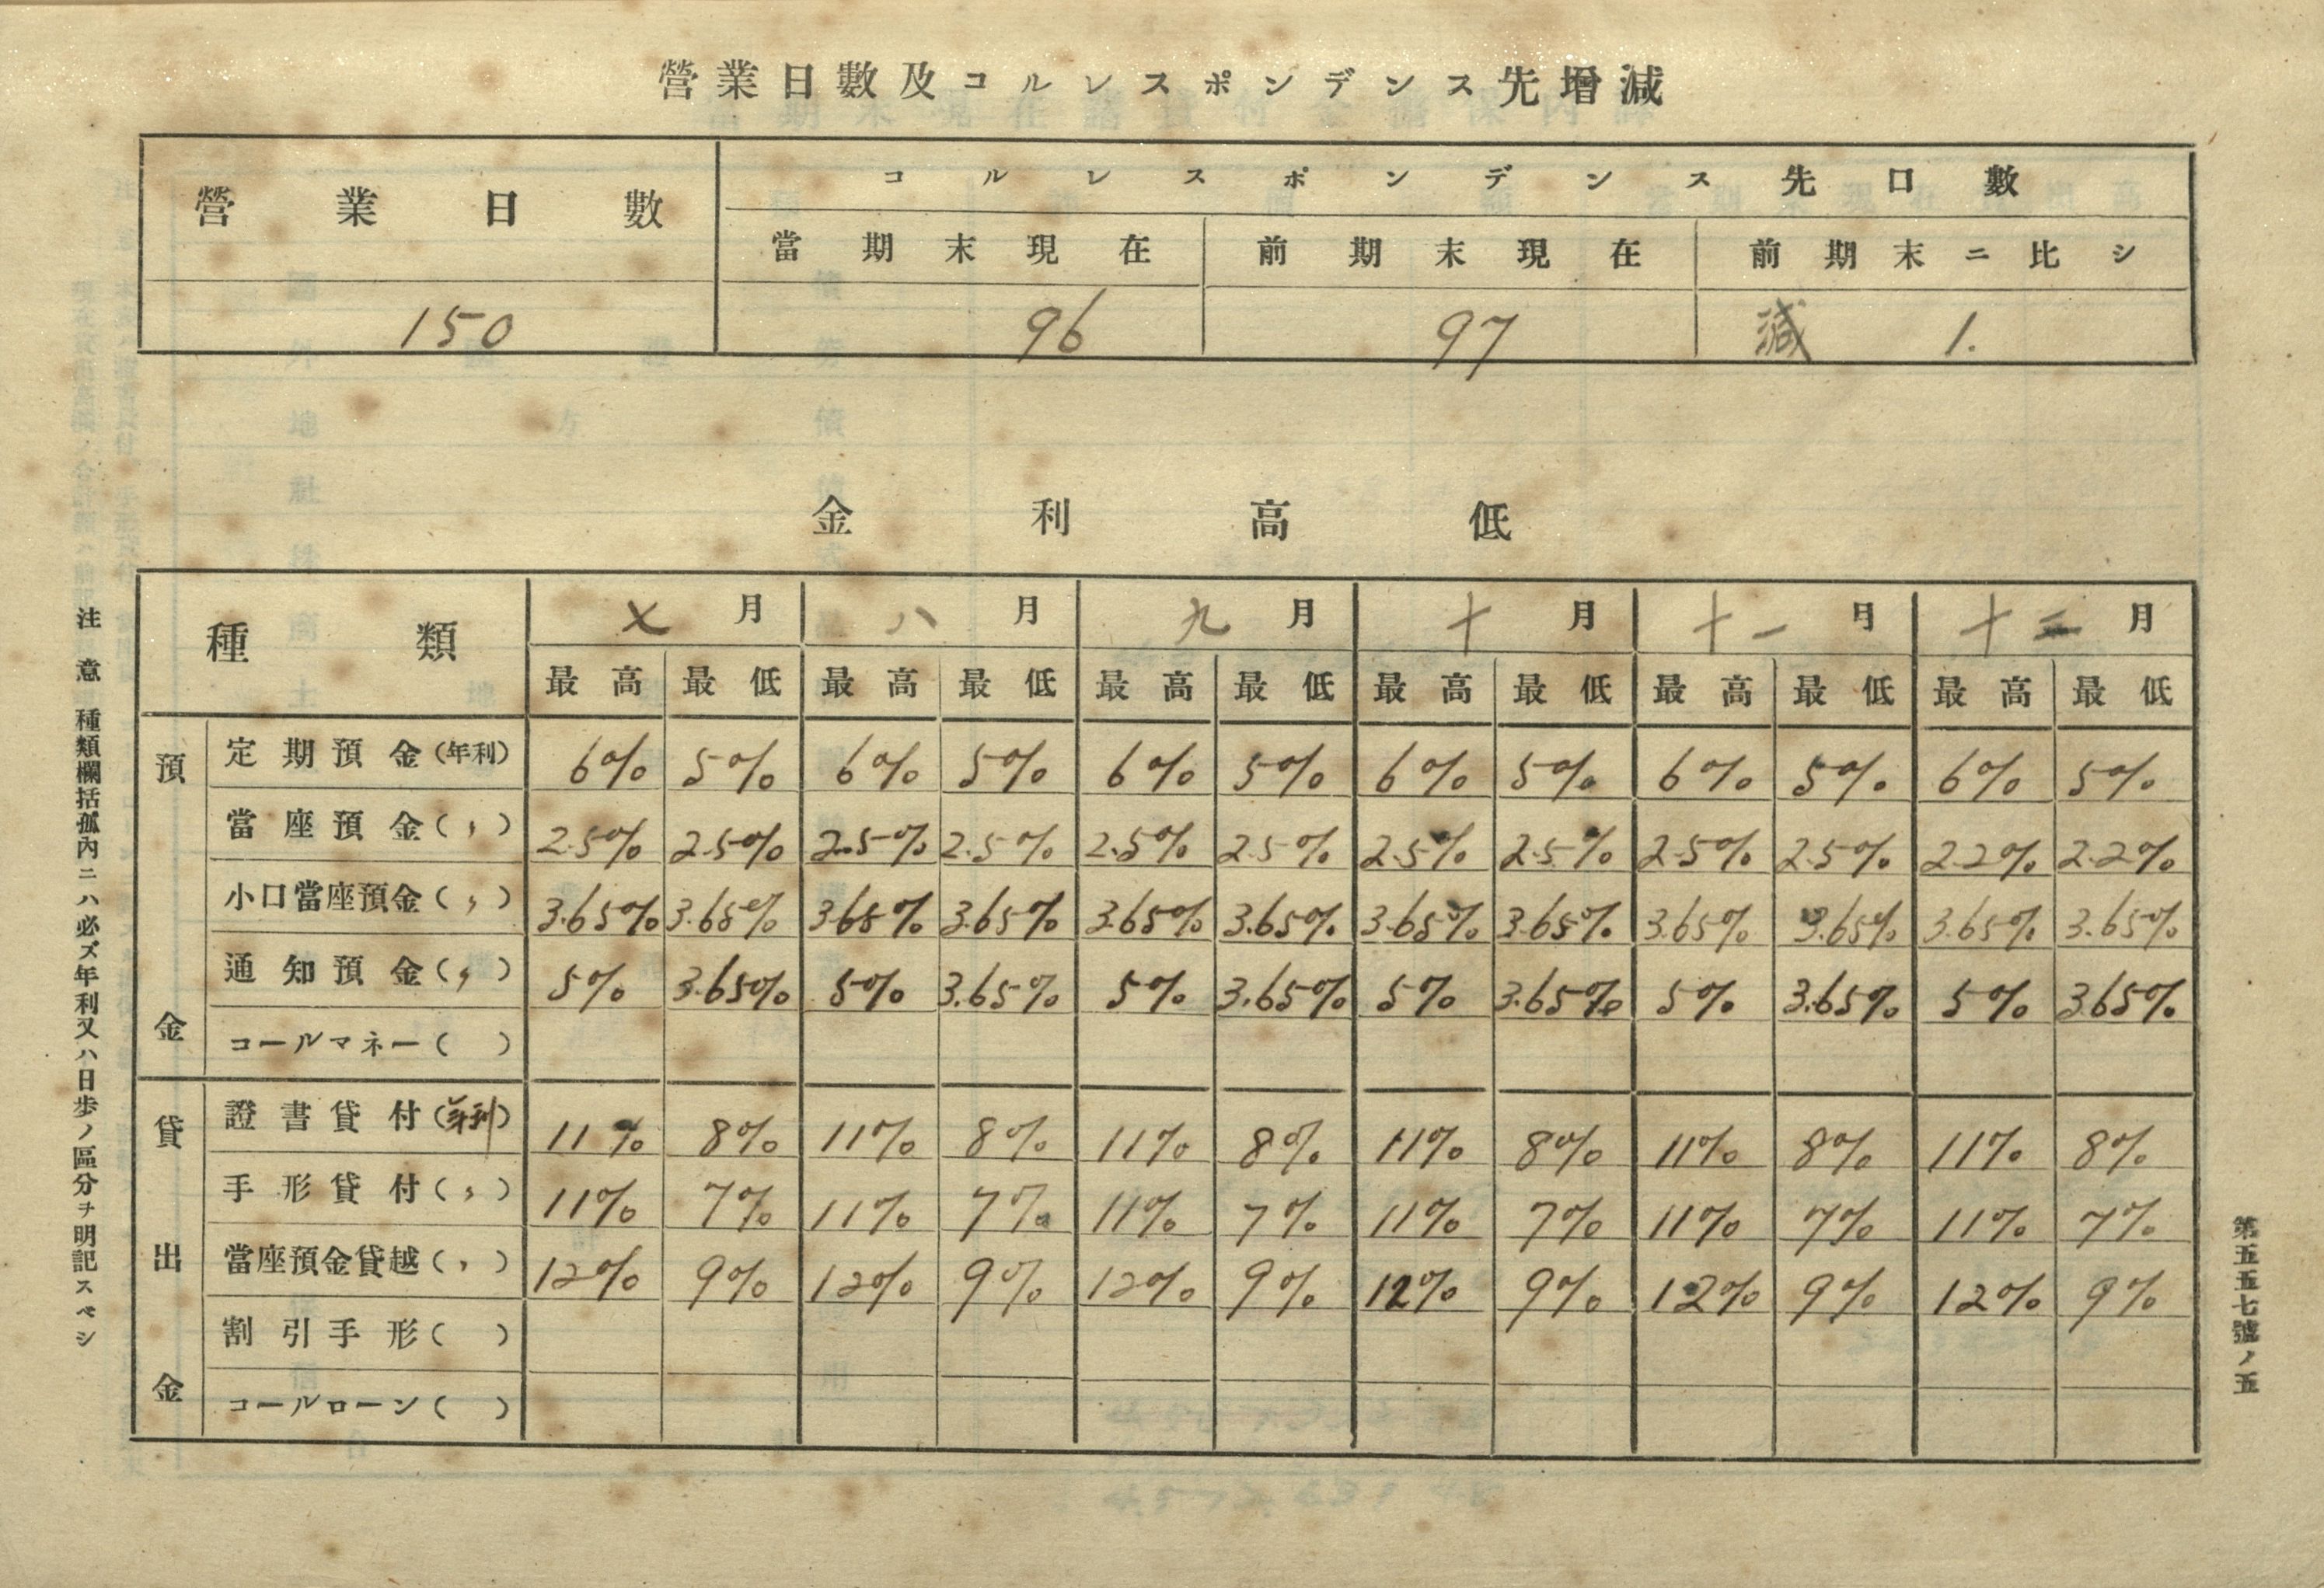 營業日數及コルレスポンデンス先增減
營業日數 コルレスポンデンス先口數
當期末現在 前期末現在 前期末ニ比シ
150 96 97 減 1.
金利高低
種類 七月 八月 九月 十月 十一月 十二月
最高 最低 最高 最低 最高 最低 最高 最低 最高 最低 最高 最低
預金
定期預金(年利) 6% 5% 6% 5% 6% 5% 6% 5% 6% 5% 6% 5%
當座預金(〃) 2.5% 2.5% 2.5% 2.5% 2.5% 2.5% 2.5% 2.5% 2.5% 2.5% 2.2% 2.2%
小口當座預金(〃) 3.65% 3.65% 3.65% 3.65% 3.65% 3.65% 3.65% 3.65% 3.65% 3.65% 3.65% 3.65%
通知預金(〃) 5% 3.65% 5% 3.65% 5% 3.65% 5% 3.65% 5% 3.65% 5% 3.65%
コールマネー( )
貸出金
證書貸付(年利) 11% 8% 11% 8% 11% 8% 11% 8% 11% 8% 11% 8%
手形貸付(〃) 11% 7% 11% 7% 11% 7% 11% 7% 11% 7% 11% 7%
當座預金貸越(〃) 12% 9% 12% 9% 12% 9% 12% 9% 12% 9% 12% 9%
割引手形( )
コールローン( )
注意 種類欄括孤內ニハ必ズ年利又ハ日步ノ區分ヲ明記スベシ
第五五七號ノ五